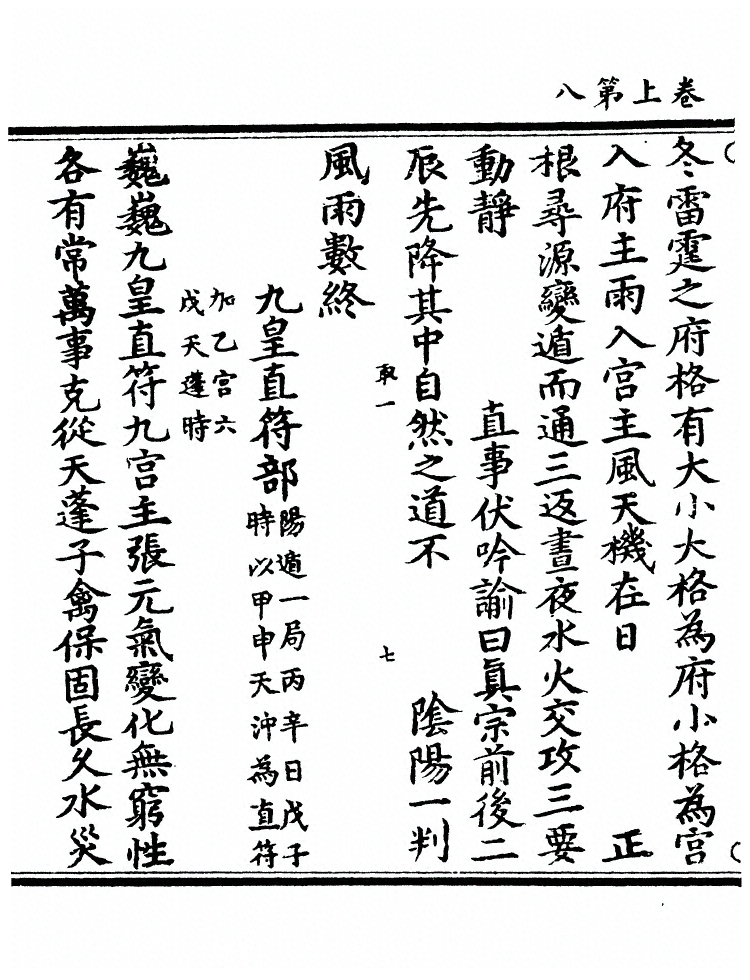 卷上第八
冬雷霆之府格有大小大格為府小格為宮
入府主雨入宮主風天機在日　正
根尋源變遁而通三返晝夜水火交攻三要
動靜　直事伏吟諭曰真宗前後二
辰先降其中自然之道不　陰陽一判
取一　七
風雨數終
九皇直符部陽遁一局丙辛日戊子
時以甲申天沖為直符
加乙宮六
戊天蓬時
巍巍九皇直符九宮主張元氣變化無窮性
各有常萬事克從天蓬子禽保固長久水災